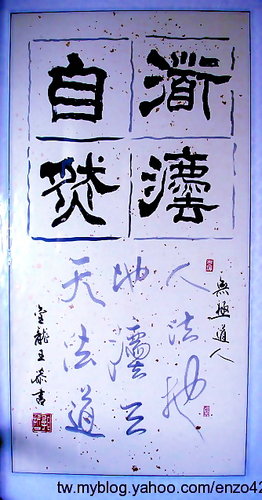 衟灋
自然
無極道人
人法地
地灋天
天法道
龍王恭書
tw.myblog.yahoo.com/enzo42